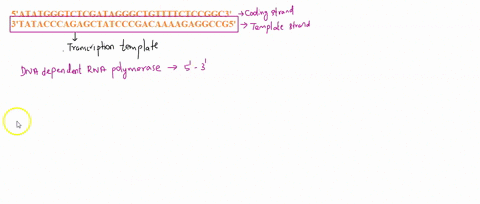 5'ATATGGGTCTCGATAGGGCTGTTTTCTCCGGC3' → Coding strand
3'TATACCCAGAGCTATCCCGACAAAAGAGGCCG5' → Template strand
Transcription template
DNA dependent RNA polymerase → 5' - 3'